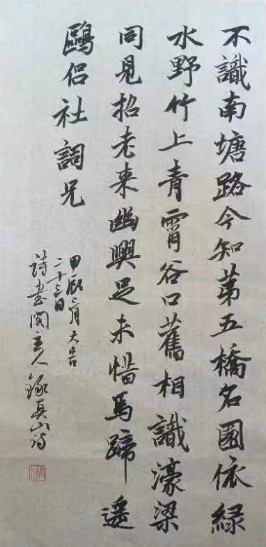 不識南塘路今知第五橋名園依綠
水野竹上青霄谷口舊相識濠梁
同見招老来幽興足未惜馬蹄遥
鷗侶社詞兄
甲辰月大吉
二十三日
詩書閣主人錄真山詩